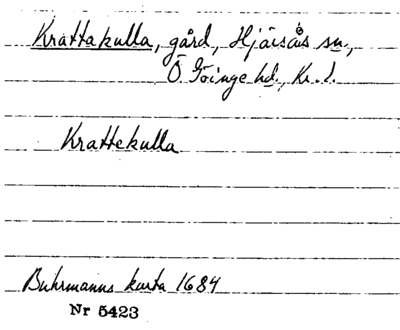 Krattakulla, gård, Hjärsås sn,
Ö. Göinge hd., Kr. l.
Krattekulla
Buhrmanns karta 1684
Nr 5423